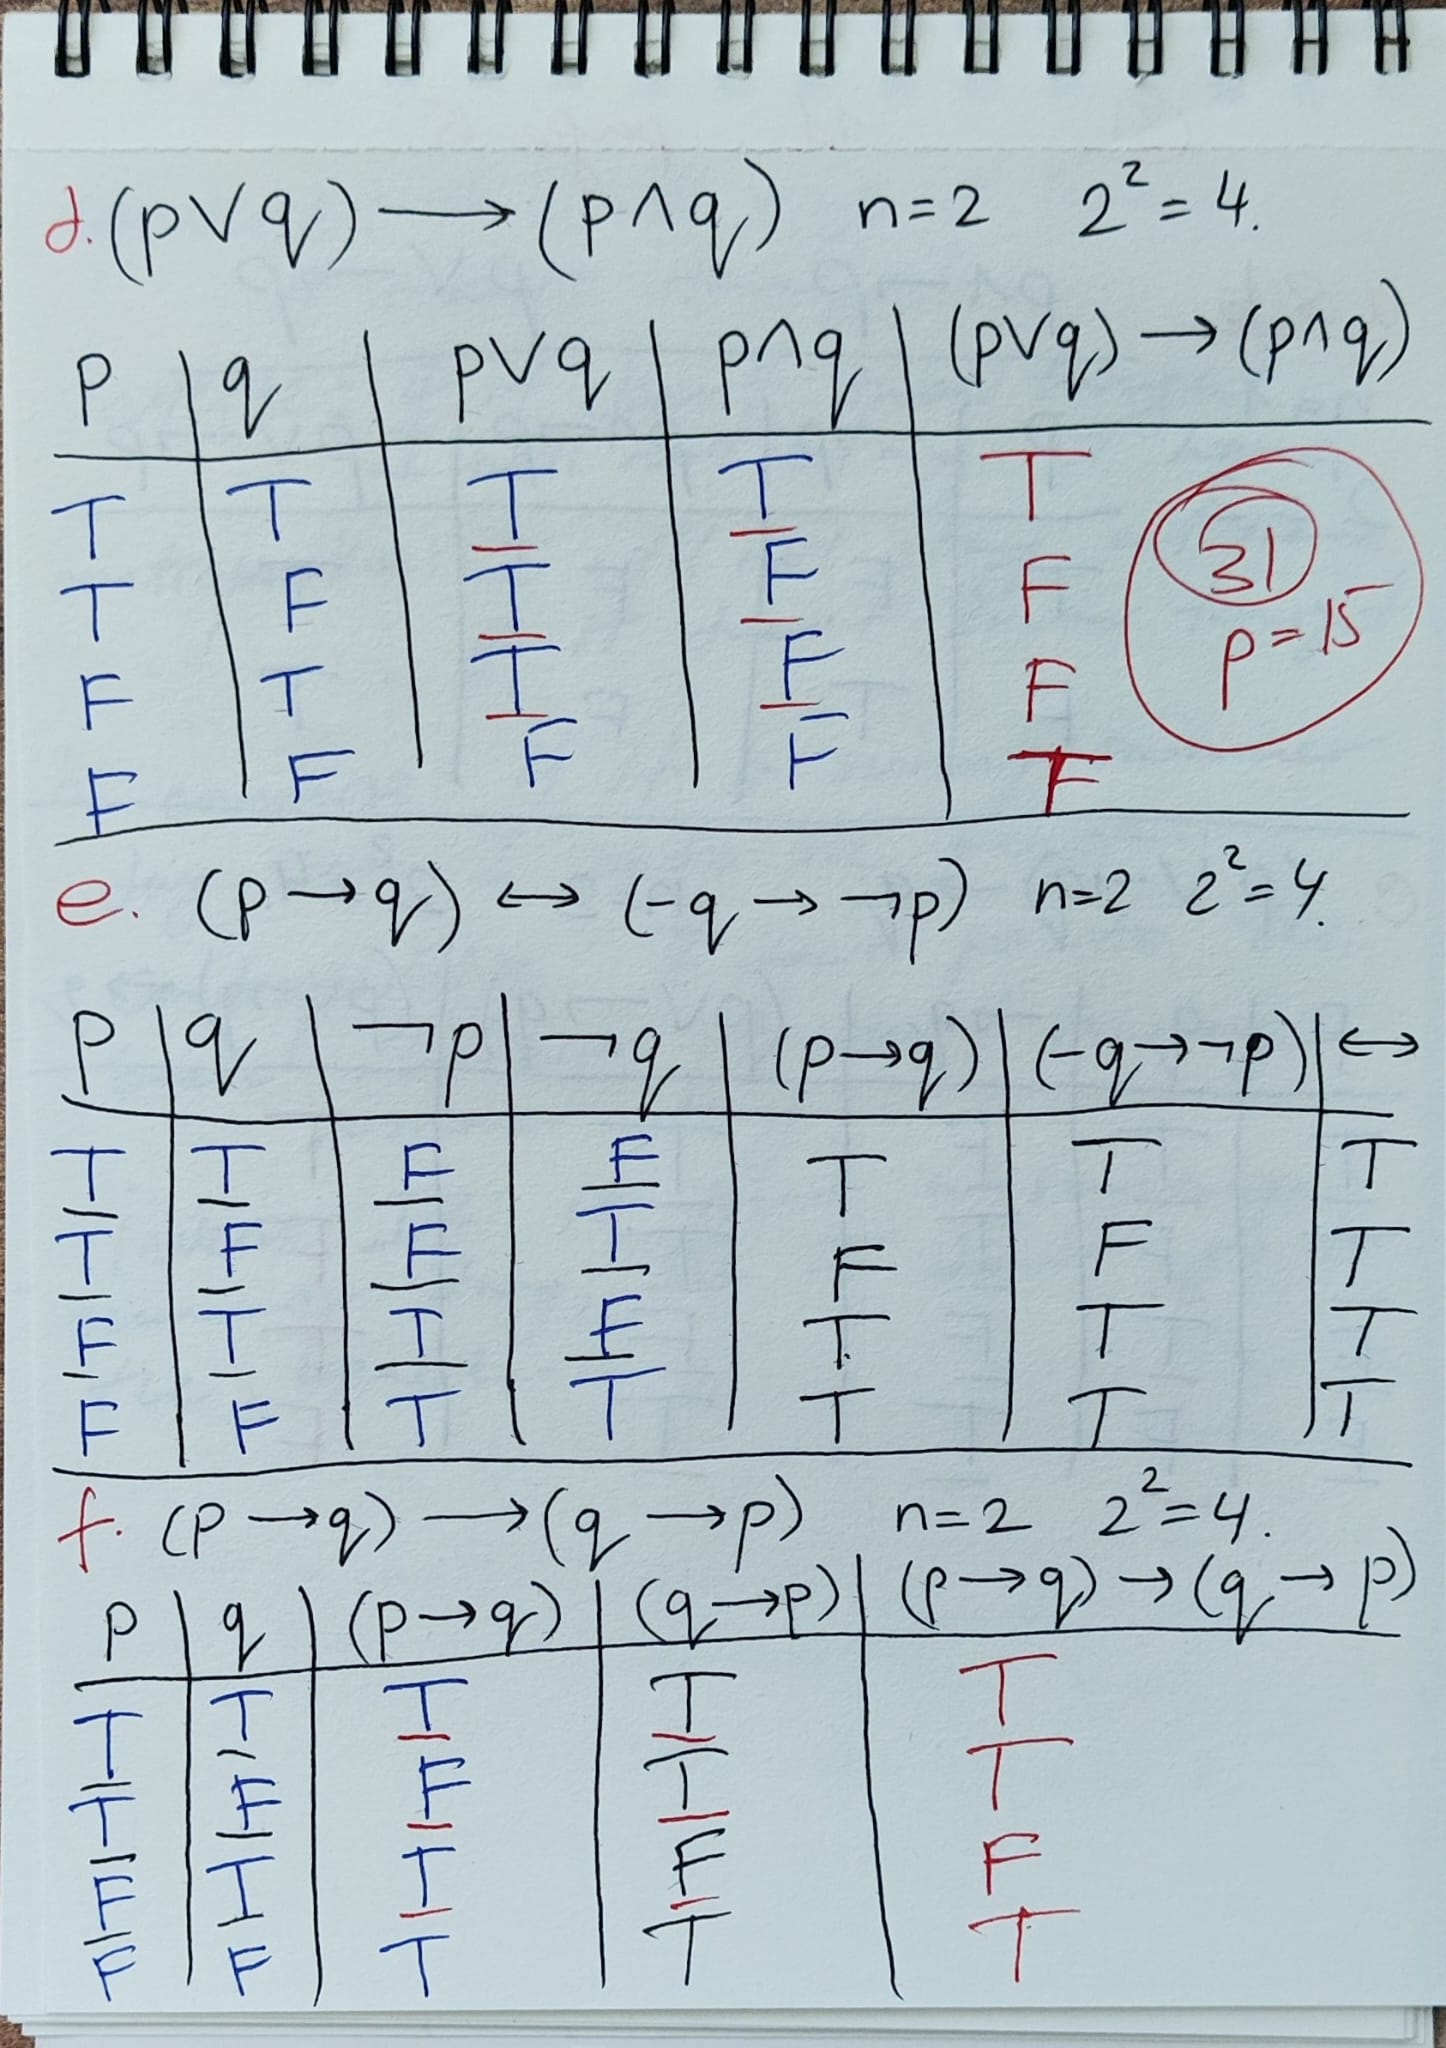 d. (p∨q) ⟶ (p∧q) n=2 2²=4.
p | q | p∨q | p∧q | (p∨q) → (p∧q)
T T T T T
T F T F F
F T T F F
F F F F
31
p=15
e. (p→q) ↔ (-q→¬p) n=2 2²=4.
p | q | ¬p | ¬q | (p→q) | (-q→¬p) | ↔
T T F F T T T
T F F T F F T
F T T F T T T
F F T T T T T
f. (p→q) ⟶ (q→p) n=2 2²=4.
p | q | (p→q) | (q→p) | (p→q) → (q→p)
T T T T T
T F F T T
F T T F F
F F T T T